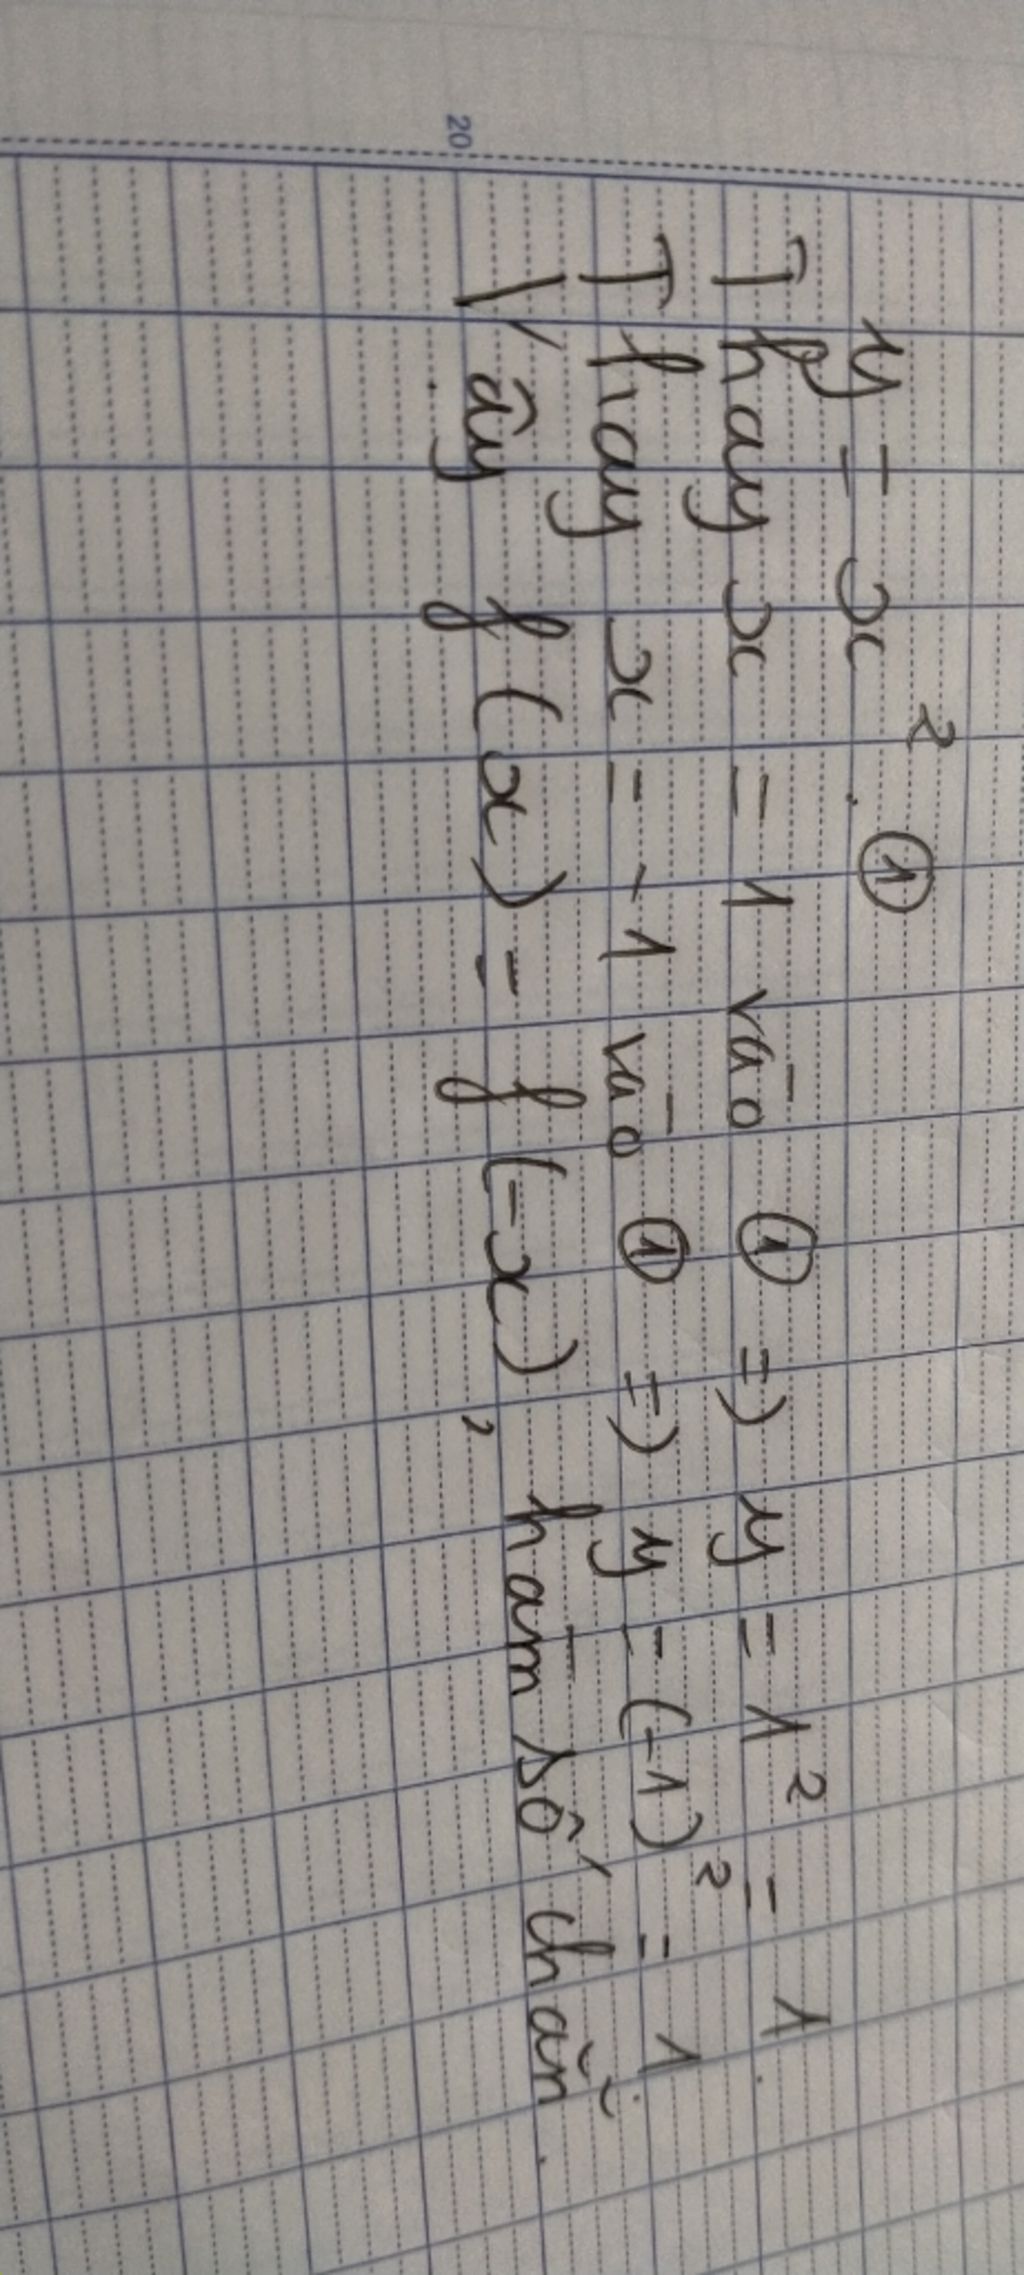 y = x² . ①
Thay x = 1 vào ① => y = 1² = 1.
Thay x = -1 vào ① => y = (-1)² = 1.
Vậy f(x) = f(-x), hàm số chẵn.
20